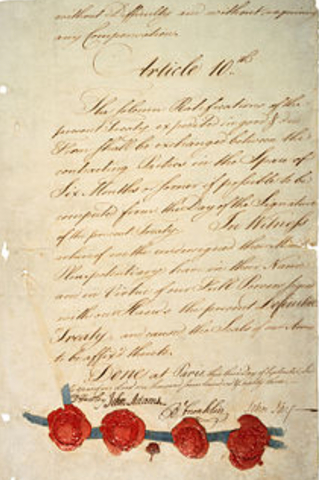 without Difficulty and without requiring
any Compensation.
Article 10th.
The solemn Ratifications of the
present Treaty expedited in good & due
Form shall be exchanged between the
contracting Parties in the Space of
Six Months or sooner if possible to be
computed from the Day of the Signature
of the present Treaty. In Witness
whereof we the undersigned their
Plenipotentiary have in their Name
and in Virtue of our Full Powers signed
with our Hands the present Definitive
Treaty, and caused the Seals of our Arms
to be affix'd thereto.
Done at Paris, this third Day of September, In
one thousand seven hundred & eighty three.
John Adams. B Franklin John Jay